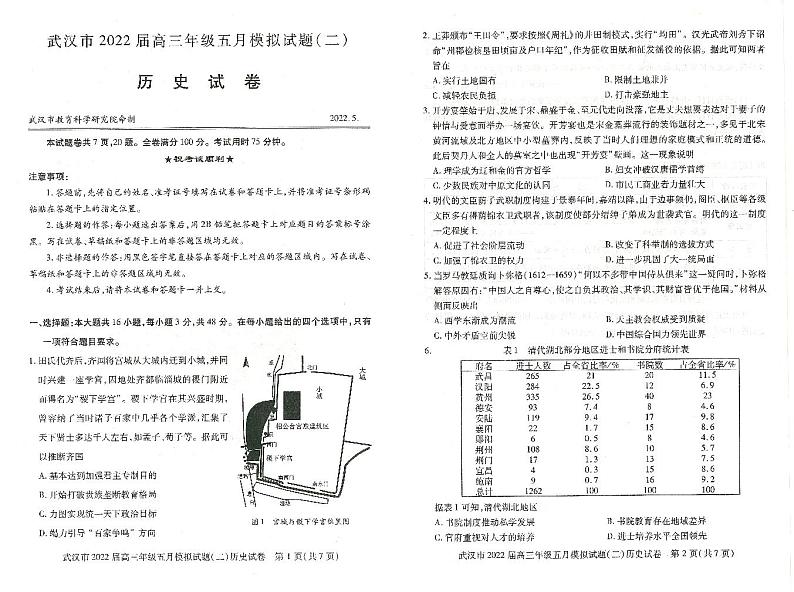 武汉市2022届高三年级五月模拟试题(二)
历史试卷
武汉市教育科学研究院命制 2022.5.
本试题卷共7页,20题。全卷满分100分。考试用时75分钟。
★祝考试顺利★
注意事项:
1.答题前,先将自己的姓名、准考证号填写在试卷和答题卡上,并将准考证号条形码
粘贴在答题卡上的指定位置。
2.选择题的作答:每小题选出答案后,用2B铅笔把答题卡上对应题目的答案标号涂
黑。写在试卷、草稿纸和答题卡上的非答题区域均无效。
3.非选择题的作答:用黑色签字笔直接答在答题卡上对应的答题区域内。写在试卷、
草稿纸和答题卡上的非答题区域均无效。
4.考试结束后,请将本试卷和答题卡一并上交。
一、选择题:本大题共16小题,每小题3分,共48分。在每小题给出的四个选项中,只有
一项符合题目要求。
1.田氏代齐后,齐国将宫城从大城内迁到小城,并同
时兴建一座学宫,因地处齐都临淄城的稷门附近
而得名为“稷下学宫”。稷下学宫在其兴盛时期,
曾容纳了当时诸子百家中几乎各个学派,汇集了
天下贤士多达千人左右,如孟子、荀子等。据此可
以推断齐国
A.基本达到加强君主专制目的
B.开始打破贵族垄断教育格局
C.力图实现统一天下政治目标
D.竭力引导“百家争鸣”方向
大城
北门
小城
相公台宫殿建筑区
西门
稷下学宫
南东门
图1 宫城与稷下学宫位置图
武汉市2022届高三年级五月模拟试题(二)历史试卷 第1页(共7页)
2.王莽颁布“王田令”,要求按照《周礼》的井田制模式,实行“均田”。汉光武帝刘秀下诏
命“州郡检核垦田顷亩及户口年纪”,作为征收田赋和征发徭役的依据。据此可知两者
旨在
A.实行土地国有 B.限制土地兼并
C.减轻农民负担 D.打击豪强地主
3.开芳宴肇始于唐、发展于宋、鼎盛于金、至元代走向没落,它是丈夫想要表达对于妻子的
钟情与爱意而举办一场宴饮。开芳宴也是宋金墓葬流行的装饰题材之一,多见于北宋
黄河流域及北方地区中小型墓葬内,反映了当时人们理想的家庭模式和正统的道德。
此后契丹人和金人的墓室之中也出现“开芳宴”壁画。这一现象说明
A.理学成为辽和金的官方哲学 B.妇女冲破汉唐儒学首缚
C.少数民族对中原文化的认同 D.市民工商业者力量壮大
4.明代的文臣荫子武职制度构建于景泰年间,嘉靖以降,由于边事频仍,阁臣、枢臣等各级
文臣多有得荫锦衣卫武职者,该制度使部分绅绅子弟成为世袭武官。明代的这一制度
一定程度上
A.促进了社会阶层流动 B.改变了科举制的选拔方式
C.加强了锦衣卫的权力 D.进一步巩固了大一统局面
5.当罗马教廷质询卜弥格(1612—1659)“何以不多带中国侍从俱来”这一疑问时,卜弥格
解答原因有:“中国人之自尊心,使之自负其政治、其学识、其财富皆优于他国。”材料从
侧面反映出
A.西学东渐成为潮流 B.天主教会权威受到质疑
C.中外矛盾空前尖锐 D.中国综合国力领先世界
6. 表1 清代湖北部分地区进士和书院分府统计表
府名 进士人数 占全省比率/% 书院数 占全省比率/%
武昌 265 21 20 11.5
汉阳 284 22.5 12 6.9
黄州 335 26.5 40 23
德安 93 7.4 8 4.6
安陆 119 9.4 17 9.8
襄阳 22 1.7 15 8.6
郧阳 6 0.5 8 4.6
荆州 108 8.6 10 5.7
荆门 17 1.3 13 7.5
宜昌 4 0.3 15 8.6
施南 9 0.7 16 9.2
总计 1262 100 100 100
据表1可知,清代湖北地区
A.书院制度推动私学发展 B.书院教育存在地域差异
C.官府重视对人才的培养 D.进士培养水平全国领先
武汉市2022届高三年级五月模拟试题(二)历史试卷 第2页(共7页)